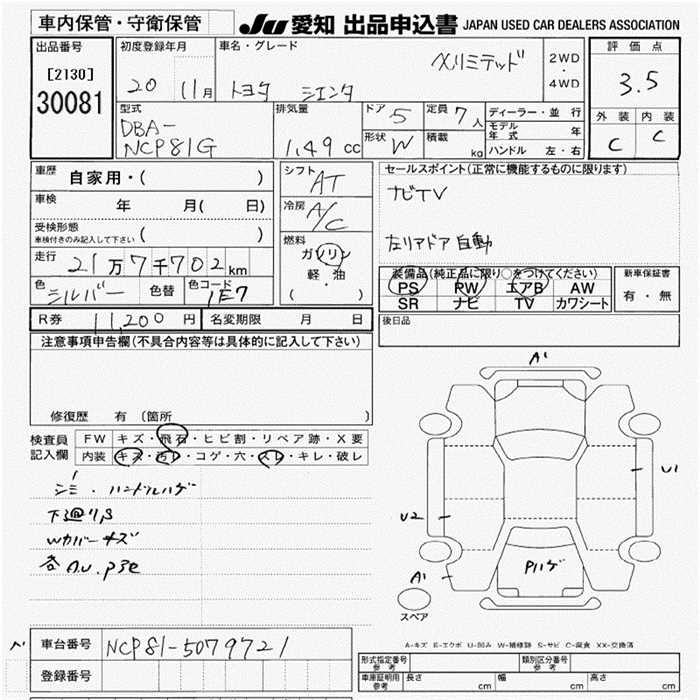 車内保管・守衛保管
JU 愛知 出品申込書 JAPAN USED CAR DEALERS ASSOCIATION
出品番号
[2130]
30081
初度登録年月
20 11月
車名・グレード
トヨタ シエンタ Xリミテッド
2WD
・
4WD
評価点
3.5
外装 内装
C C
型式
DBA-
NCP81G
排気量
1.49 cc
ドア 5
定員 7人
形状 W
積載 kg
ディーラー・並行
モデル年式 年
ハンドル 左・右
車歴
自家用・( )
車検 年 月( 日)
受検形態
車検付きのみ記入して下さい ( )
走行 21万7千702km
色 シルバー 色替 色コード 1E7
シフト AT
冷房 A/C
燃料
ガソリン
軽・油
( )
セールスポイント(正常に機能するものに限ります)
ナビTV
左リアドア自動
装備品(純正品に限り○をつけてください)
PS PW エアB AW
SR ナビ TV カワシート
新車保証書
有・無
R券 11,200円 名変期限 月 日
後日品
注意事項申告欄(不具合内容等は具体的に記入して下さい)
修復歴 有 (箇所 )
検査員
記入欄
FW キズ・飛石・ヒビ割・リペア跡・X要
内装 キズ・汚レ・コゲ・穴・スレ・キレ・破レ
シミ・ハンドルハゲ
下廻りS
Wカバーキズ
各A.U.
A1
U1
U2
A1
Pハゲ
スペア
A-キズ E-エクボ U-凹み W-補修跡 S-サビ C-腐食 XX-交換済
車台番号 NCP81-5079721
登録番号
形式指定番号 参考
類別区分番号 参考
車庫証明用 参考 長さ cm 幅 cm 高さ cm